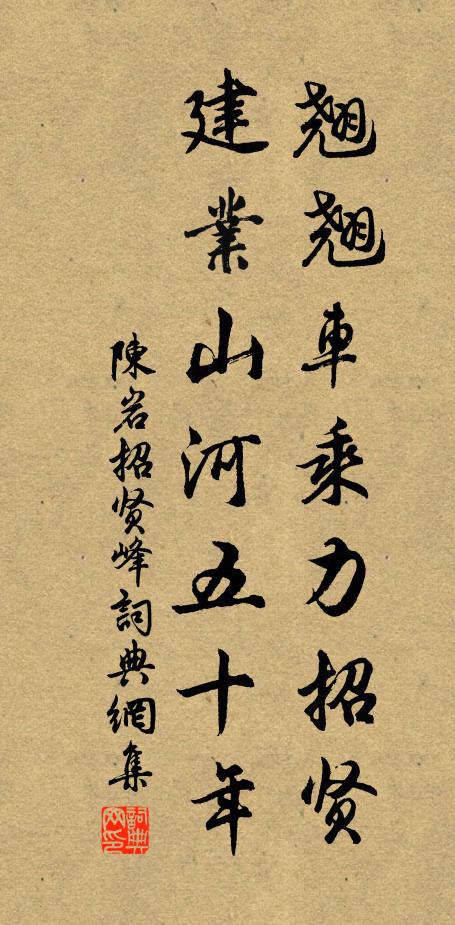 翹翹車乘力招贤
建業山河五十年
陳岩招贤峰詞典網集